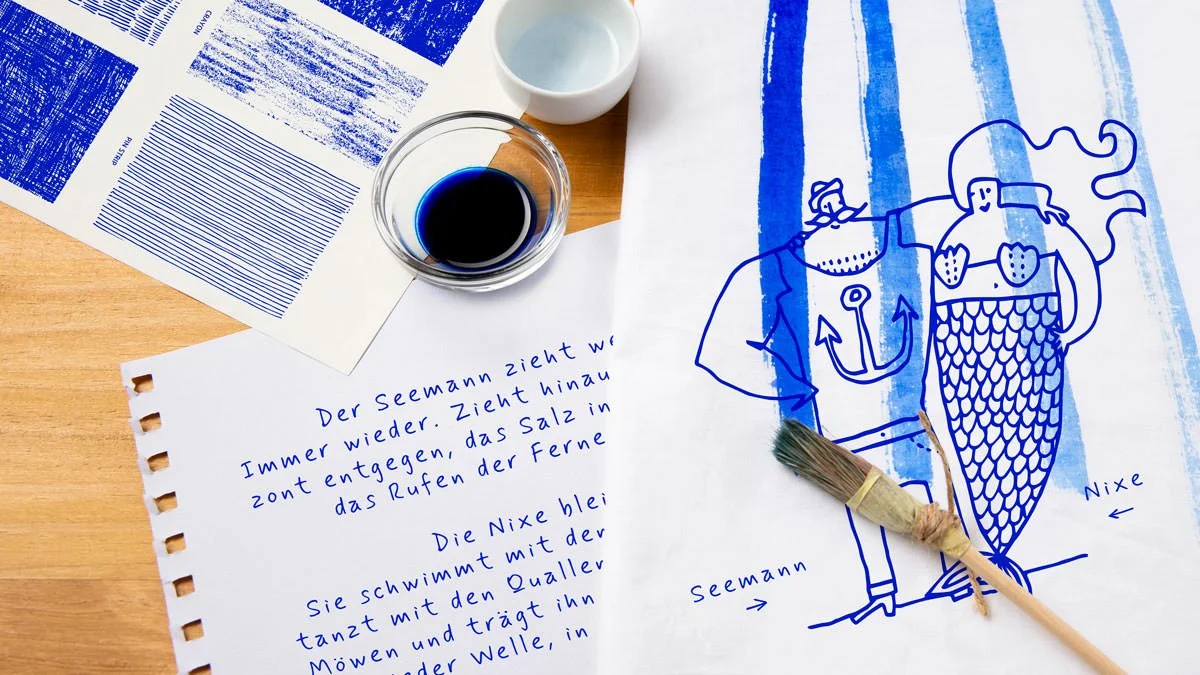 CRAYON
PIN STRIP
Der Seemann zieht
Immer wieder. Zieht hinau
zont entgegen, das Salz in
das Rufen der Ferne
Die Nixe blei
Sie schwimmt mit der
tanzt mit den Quallen
Möwen und trägt ihn
Welle, in
Nixe
Seemann